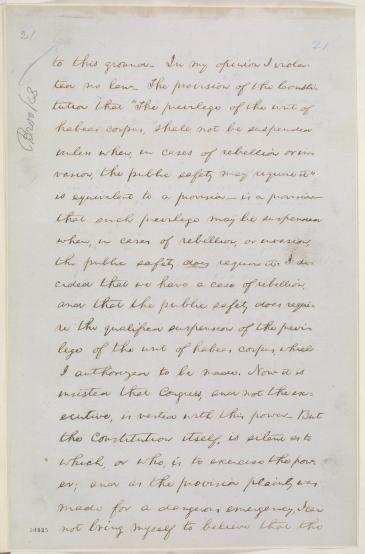 21
21
Brooks
to this ground. In my opinion I viola-
ted no law. The provision of the Consti-
tution that "The privilege of the writ of
habeas corpus, shall not be suspended
unless when, in cases of rebellion or in-
vasion, the public safety may require it"
is equivalent to a provision—is a provision
that such privilege may be suspended
when, in cases of rebellion, or invasion,
the public safety does require it. I de-
cided that we have a case of rebellion,
and that the public safety does requi-
re the qualified suspension of the privi-
lege of the writ of habeas corpus, which
I authorized to be made. Now it is
insisted that Congress, and not the ex-
ecutive, is vested with this power. But
the Constitution itself, is silent as to
which, or who, is to exercise the pow-
er; and as the provision plainly was
made for a dangerous emergency, I can
not bring myself to believe that the